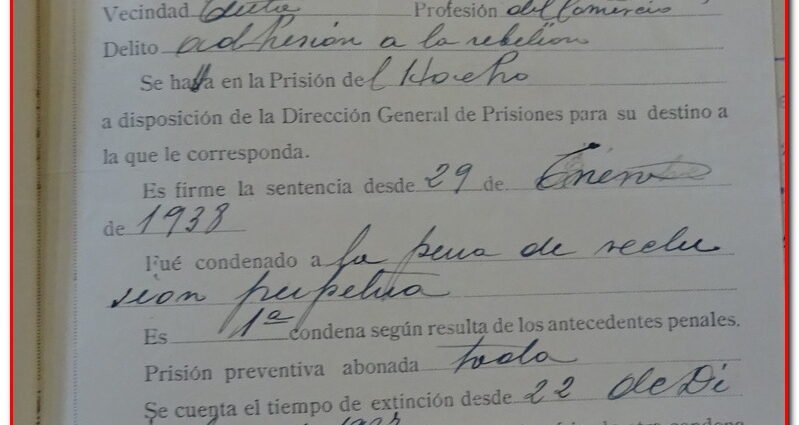 Vecindad Ceuta Profesión del Comercio
Delito adhesión a la rebelión
Se halla en la Prisión del Hacho
a disposición de la Dirección General de Prisiones para su destino a
la que le corresponda.
Es firme la sentencia desde 29 de Enero
de 1938
Fué condenado a la pena de reclu
sion perpetua
Es 1ª condena según resulta de los antecedentes penales.
Prisión preventiva abonada toda
Se cuenta el tiempo de extinción desde 22 de Di